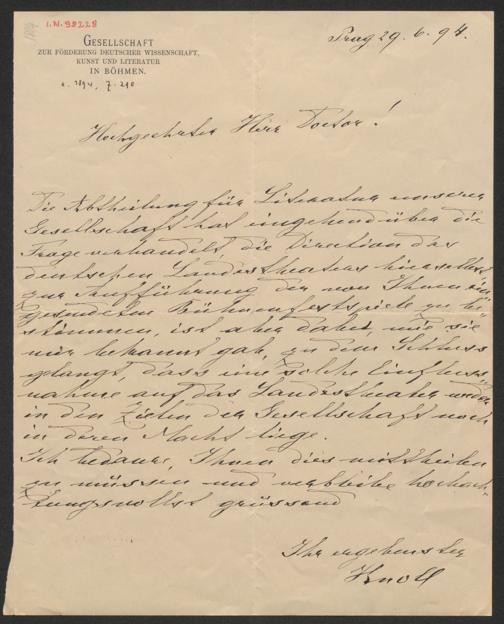 I.N. 98228
GESELLSCHAFT
ZUR FÖRDERUNG DEUTSCHER WISSENSCHAFT,
KUNST UND LITERATUR
IN BÖHMEN.
Prag 29. 6. 94.
Hochgeehrter Herr Doctor!
Die Abtheilung für Literatur unserer
Gesellschaft hat eingehend über die
Frage verhandelt, die Direction des
deutschen Landestheaters hierselbst
zur Aufführung der von Ihnen ein¬
gesendeten Bühnenfestspiele zu be¬
stimmen, ist aber dabei, wie sie
mir bekannt gab, zu dem Schluss
gelangt, dass eine solche Einfluss¬
nahme auf das Landestheater weder
in den Zielen der Gesellschaft noch
in deren Macht liege.
Ich bedaure, Ihnen dies mittheilen
zu müssen und verbleibe hochach¬
tungsvollst grüssend
Ihr ergebenster
Knoll